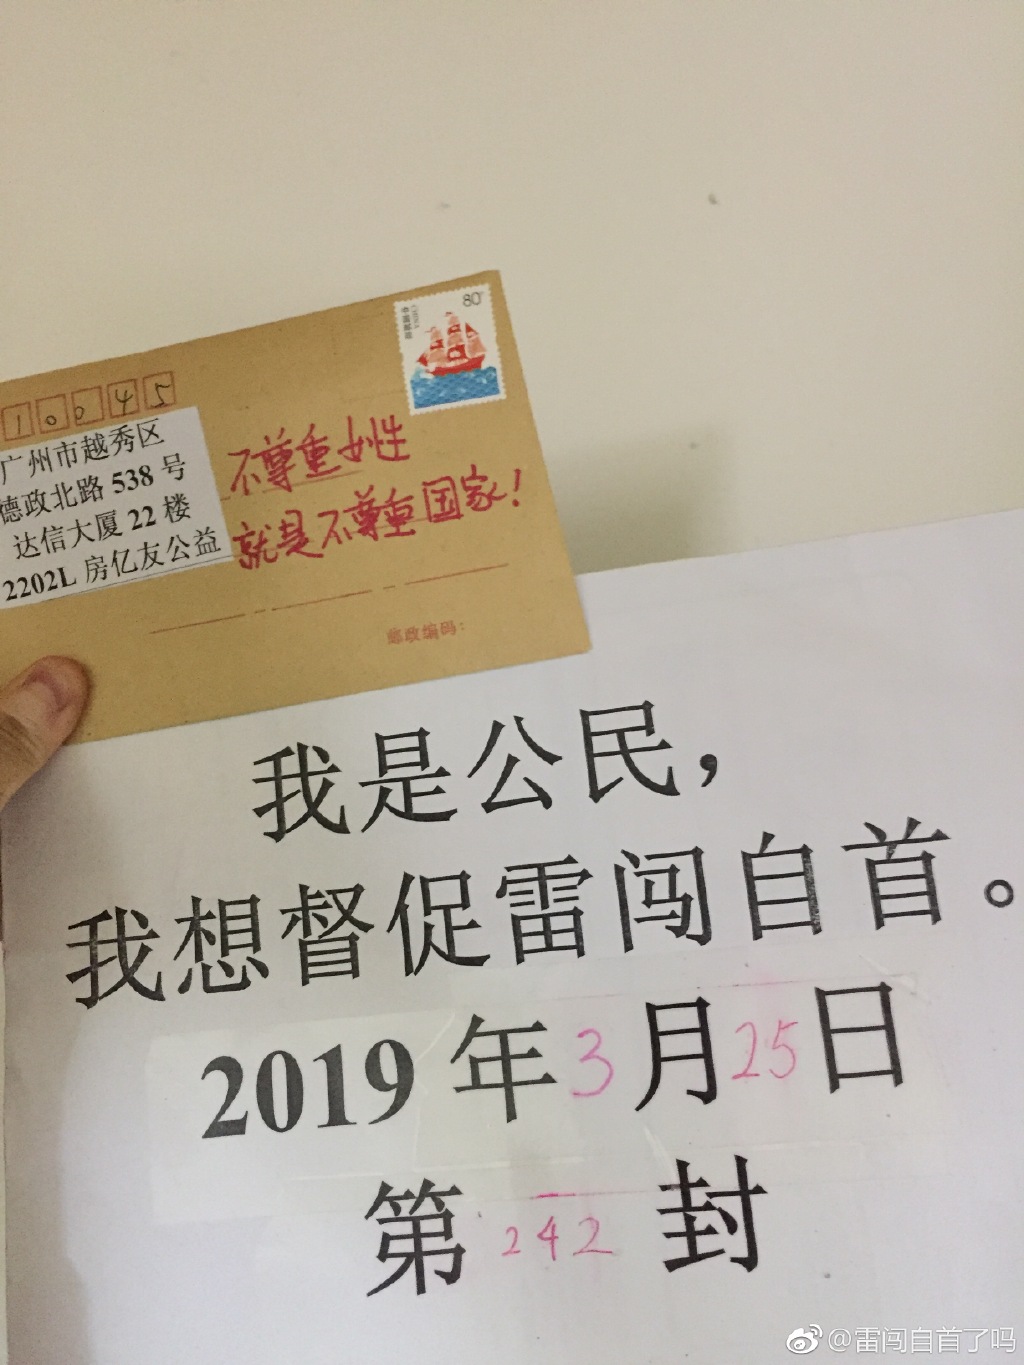 80
CHINA
中国邮政
10045
广州市越秀区
德政北路 538 号
达信大厦 22 楼
2202L 房亿友公益
不尊重女性
就是不尊重国家！
邮政编码：
我是公民，
我想督促雷闯自首。
2019 年 3 月 25 日
第 242 封
@雷闯自首了吗